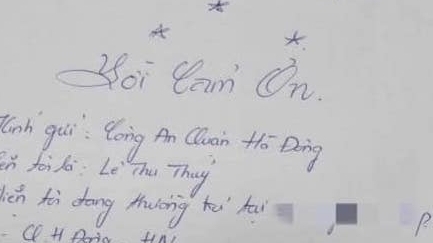 Lời Cảm Ơn.
Kính gửi: Công An Quận Hà Đông
tên tôi là: Lê Thu Thuỷ
Hiện tôi đang thường trú tại P.
- Q H Đông HN